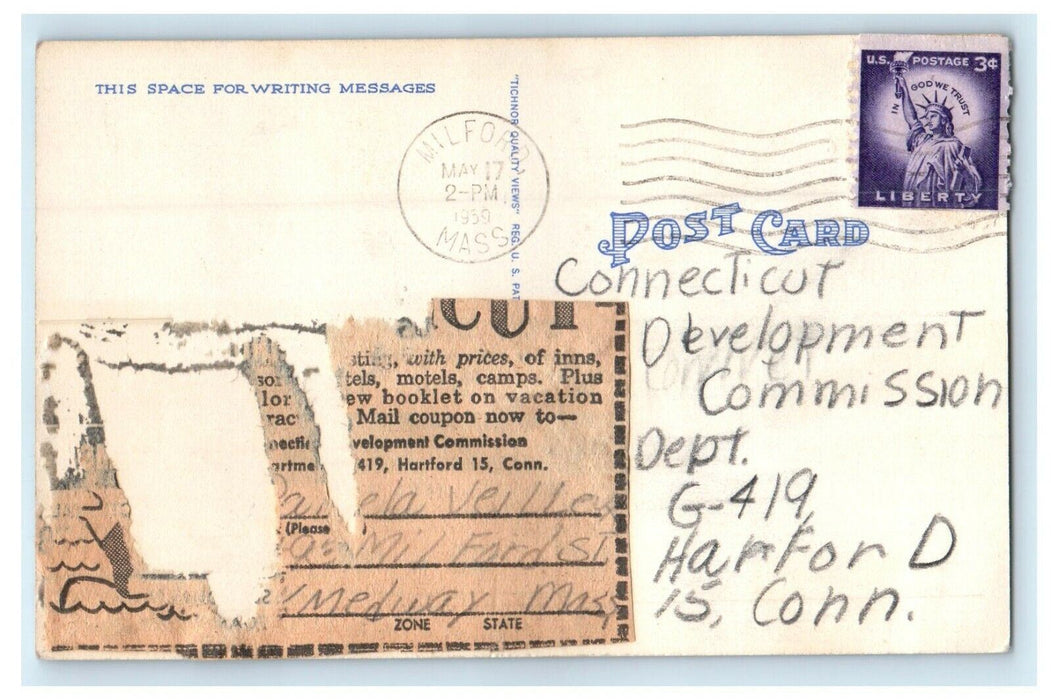 THIS SPACE FOR WRITING MESSAGES
"TICHNOR QUALITY VIEWS" REG. U. S. PAT
MILFORD,
MAY 17
2-PM
1959
MASS.
U.S. POSTAGE 3¢
IN GOD WE TRUST
LIBERTY
POST CARD
Connecticut
Development
CommiSSion
Dept.
G-419,
HartforD
15, Conn.
CUT
sting, with prices, of inns,
tels, motels, camps. Plus
lor ew booklet on vacation
rac Mail coupon now to—
necti velopment Commission
artme 419, Hartford 15, Conn.
Pamela Veilleu
(Please )
MilFord ST
Medway Mass
ZONE STATE